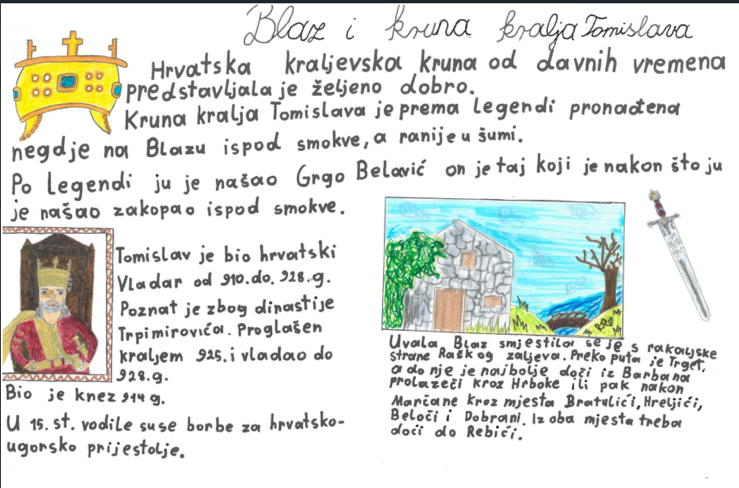 Blaz i kruna kralja Tomislava
Hrvatska kraljevska kruna od davnih vremena
predstavljala je željeno dobro.
Kruna kralja Tomislava je prema legendi pronađena
negdje na Blazu ispod smokve, a ranije u šumi.
Po legendi ju je našao Grgo Belavić on je taj koji je nakon što ju
je našao zakopao ispod smokve.
Tomislav je bio hrvatski
vladar od 910. do. 928. g.
Poznat je zbog dinastije
Trpimirovića. Proglašen
kraljem 925. i vladao do
928. g.
Bio je knez 914 g.
U 15. st. vodile su se borbe za hrvatsko-
ugorsko prijestolje.
Uvala Blaz smjestila se je s rakaljske
strane Raškog zaljeva. Preko puta je Trget,
a do nje je najbolje doći iz Barbana
prolazeći kroz Hrboke ili pak nakon
Marčane kroz mjesta Bratulići, Hreljići,
Beloči i Dobrani. Iz oba mjesta treba
doći do Rebići.